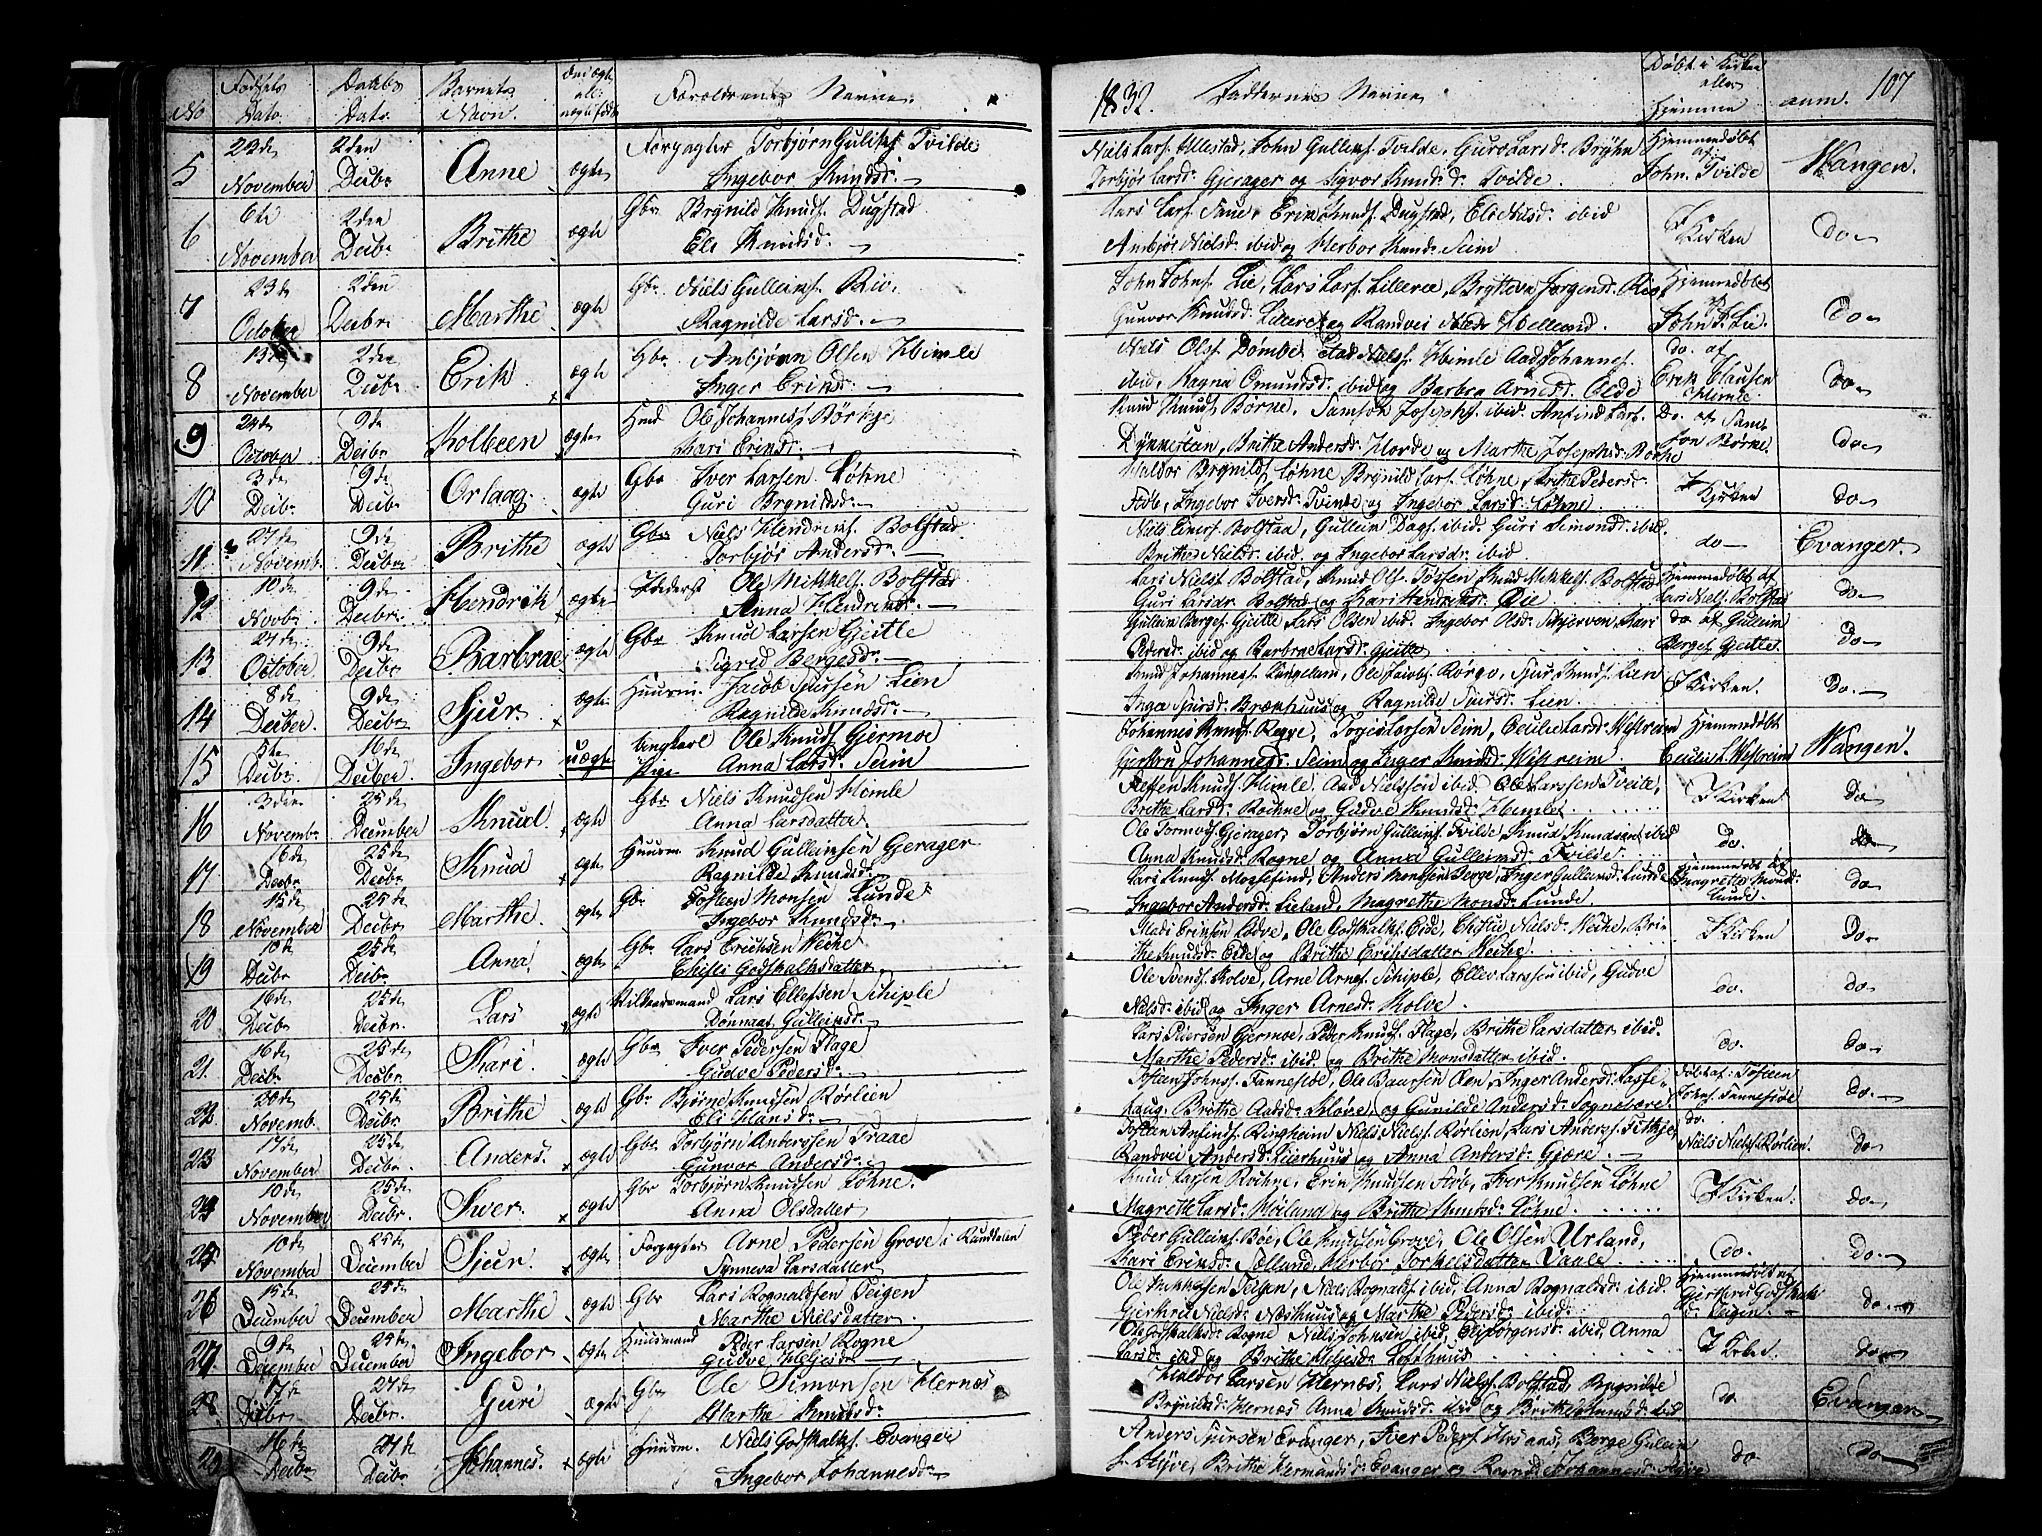 No Fødsels Dato Daabs Dato Barnets Navn Om ægte ell: uægte født Forældrenes Navne. 1832. Faddernes Navne Døbt i Kirke eller Hjemme anm. 107
5 22de November 2den Decbr Anne ægte Forpagter Torbjørn Gulliks: Tvilde
Ingebor Knudsd:
Niels Lars: Ullestad, John Gulleins: Tvilde, Guro Larsd: Bryhn
Torbjør Larsd: Gjerager og Sigvor Knuds:d: Tvilde. Hjemmedøbt af John Tvilde Wangen.
6 6te November 2den Decbr Brithe ægte Gbr Brynild Knuds: Dugstad
Eli Knudsd:
Lars Lars: Saue, Erik Knuds: Dugstad, Eli Nilsd: ibid
Anbjør Nielsd: ibid og Herbor Knudsd: Seim I Kirken do
7 23de October 2den Decbr Marthe ægte Gbr Niels Gulleins: Rio.
Ragnilde Larsd:
John Johns: Lie, Lars Lars: Lilleree, Brytteva Jørgensd: Rio,
Gunvor Knudsd: Lilleree og Randvei Nilsdr Helland. Hjemmedøbt af John J. Lie. do
8 13de November 2den Decbr Erik ægte Gbr Anbjørn Olsen Himle
Inger Eriksd:
Niels Ols: Dømbe, Aad Niels: Himle Aad Johannes:
ibid, Ragna Omundsd: ibid og Barbra Arnesd: Eide do. af Erik Clausen Himle do
9 24de October 9de Decbr Kolbeen ægte Huusd Ole Johanness: Børhje
Kari Eriksd:
Knud Knuds: Børne. Samson Josephs: ibid. Anfind Lars:
Dymestein, Brithe Andersd: Horde og Marthe Josephsd: Børhe Do. af Samson Børne. do
10 3de Decbr 9de Decbr Orlaug ægte Gbr Iver Larsen Løhne
Guri Brynildsd:
Haldor Brynilds: Løhne Brynild Lars: Løhne, Brithe Pedersd:
Støb, Ingebor Iversd: Tvinde og Ingebor Larsd: Løhne. I Kirken do
11 27de Novemb. 9de Decbr Brithe ægte Gbr Niels Hendriks: Bolstad
Torbjør Andersd:
Niels Eines: Bolstad, Gullein Dags: ibid. Guri Simonsd: ibid.
Brithe Nielsd: ibid og Ingebor Larsdr ibid do Evanger.
12 10de Novbr 9de Decbr Hendrik ægte Inderst Ole Mikkels: Bolstad
Anna Hendriksd:
Lars Niels: Bolstad, Knud Ols: Tøssen Knud Mikkels: Bolstad
Guri Larsdr Bolstad og Kari Hendriksd: Øie Hjemmedøbt af Lars Niels: Bolstad do
13 24de October 9de Decbr Barbrae ægte Gbr Knud Larsen Gjeitle
Sigrid Bergesdr
Gullein Berges: Gjeitle Lars Olsen ibid. Ingebor Olsd: Skjerven, Kari
Pedersd: ibid og Barbrae Larsd: Gjeitle do af Gullein Berges: Gjeitle. do
14 8de Decber 9de Decbr Sjur ægte Huusm. Jacob Sjursen Lien
Ragnilde Knudsdr
Knud Johannes: Langeland, Ole Jacobs: Rørgo, Sjur Knuds: Lien
Inga Sjursd: Brækhuus og Ragnilde Sjursd: Lien. I Kirken. do.
15 5te Decbr 16de Decber Ingebor uægte Ungkarl Ole Knuds: Germoe
Pige Anna Larsd: Seim
Johannes Knuds: Rogve, Torgis Larsen Seim, Cecilie Larsd: Westreim
Gjertru Johannesd: Seim og Inger Knudsd: Westreim. Hjemmedøbt Cecilie L. Westreim Wangen.
16 3die Novembr 25de December Knud ægte Gbr Niels Knudsen Himle
Anna Larsdatter
Steffen Knuds: Himle, Aad Nielssøn ibid. Ole Larssen Tveite,
Brithe Larsd: Rokne og Gudve Knudsd: Himle. I Kirken do
17 16de Decbr 25de Decbr Knud ægte Huusm. Knud Gulleinsen Gjerager
Ragnilde Knudsd:
Ole Tormos: Gjerager, Torbjørn Gulleins: Tvilde Knud Knudsen ibid
Anna Knudsd: Rogne og Anna Gulleinsd: Tvilde. do. do
18 12de November 25de Decbr Marthe ægte Gbr Tosteen Monsen Lunde
Ingebor Knudsdr
Lars Knuds: Mossefind, Anders Monsen Berge, Inger Gulleinsd: Lunde
Ingebor Andersd: Lieland, Magrethe Monsd: Lunde Hjemmedøbt af Magrethe Monsd: Lunde. do
19 10de Decbr 25de Decbr Anna ægte Gbr Lars Eriksen Neihe
Christi Godskalksdatter
Mads Eriksen Lødve, Ole Godskalks: Eide, Christie Nielsd: Neihe, Bri-
the Knudsd: Eide og Brithe Eriksdatter Neihe. I Kirken do
20 16de Decbr 25de Decbr. Lars ægte Lars Ellefsen Schiple
Dønnaat Gulleinsd:
Ole Svends: Kolve, Arne Arnes: Schiple, Ellev Larssen ibid, Gudve
Nielsd: ibid og Inger Arnesd: Kolve. do. do
21. 16de Decbr 25de Decbr. Kari ægte Gbr Iver Pedersen Flage
Gudve Pedersd:
Lars Pedersen Germoe, Peder Knuds: Flage, Brithe Larsdatter ibid.
Marthe Pedersd: ibid og Brithe Monsdatter ibid. do. do
22 20de Novemb. 25de Decbr. Brithe ægte Gbr Bjørne Knudsen Rørlien
Eli Hansdr
Tosten Johns: Fenneside, Ole Baarsen Øen, Inger Andersd: Lasse-
haug. Brithe Aadsd: Sløve, og Gunilde Andersd: Sognebære. Døbt af: Tosteen Johns: Fenneside do.
23 17de November 25de Decbr. Anders. ægte Gbr Torbjørn Anderssen Fraae
Gunvor Andersd:
Tosten Anfinds: Ringheim Niels Niels: Rørlien, Lars Anderss: Fitkje,
Randvei Andersd: Leierhuus og Anna Andersd: Gjære. do. Niels Niels: Rørlien. do
24 10de November 25de Decbr. Iver ægte Gbr Torbjørn Knudsen Løhne.
Anna Olsdatter
Knud Larsen Rokne, Erik Knudsen Støb, Iver Knudsen Løhne
Magrethe Larsd: Møiland og Brithe Knudsd: Løhne. I Kirken. do
25 10de November 25de December Sjur. ægte Forpagter Arne Pedersen Grove i Rundalen
Synneva Larsdatter
Peder Gulleins: Bøe, Ole Knudsen Grove, Ole Olsen Urland,
Kari Eriksd: Sælland, Herbor Torkelsdatter Daale. do. do.
26 15de December 25de December Marthe ægte Gbr Lars Rognaldsen Teigen
Marthe Nielsdatter.
Ole Mikkelsen Teigen, Niels Rognalds: ibid, Anna Rognaldsd: ibid
Gjertru Nielsd: Næsthuus og Marthe Pedersd: ibid Hjemmedøbt af Gjertru Godskalksd: Teigen do
27 9de December 25de December Ingebor ægte Huusmand Peder Larsen Rogne
Gudve Heljesdr
Ole Godskalks: Rogne Niels Johnsen ibid, Eli Jørgensd: ibid, Anna
Larsd: ibid og Brithe Heljesd: Lofthuus I Kirken. do
28 17de Decbr 27de Decbr. Guri ægte Gbr Ole Simonsen Hernæs
Marthe Knudsdr
Haldor Larsen Hernæs, Lars Niels: Bolstad, Ragnilde
Brynildsd: Hernæs Anna Knudsd: ibid og Brithe Johannesd: ibid do Evanger
29 16de Decbr 27de Decbr Johannes. ægte Huusm. Niels Godskalks: Evanger
Ingebor Johannesdr
Anders Sjursen Evanger, Iver Peders: Horsaas, Berge Gullein
s: Styve, Brithe Hermandsd: Evanger og Ragnilde Johannesd: Styve do do